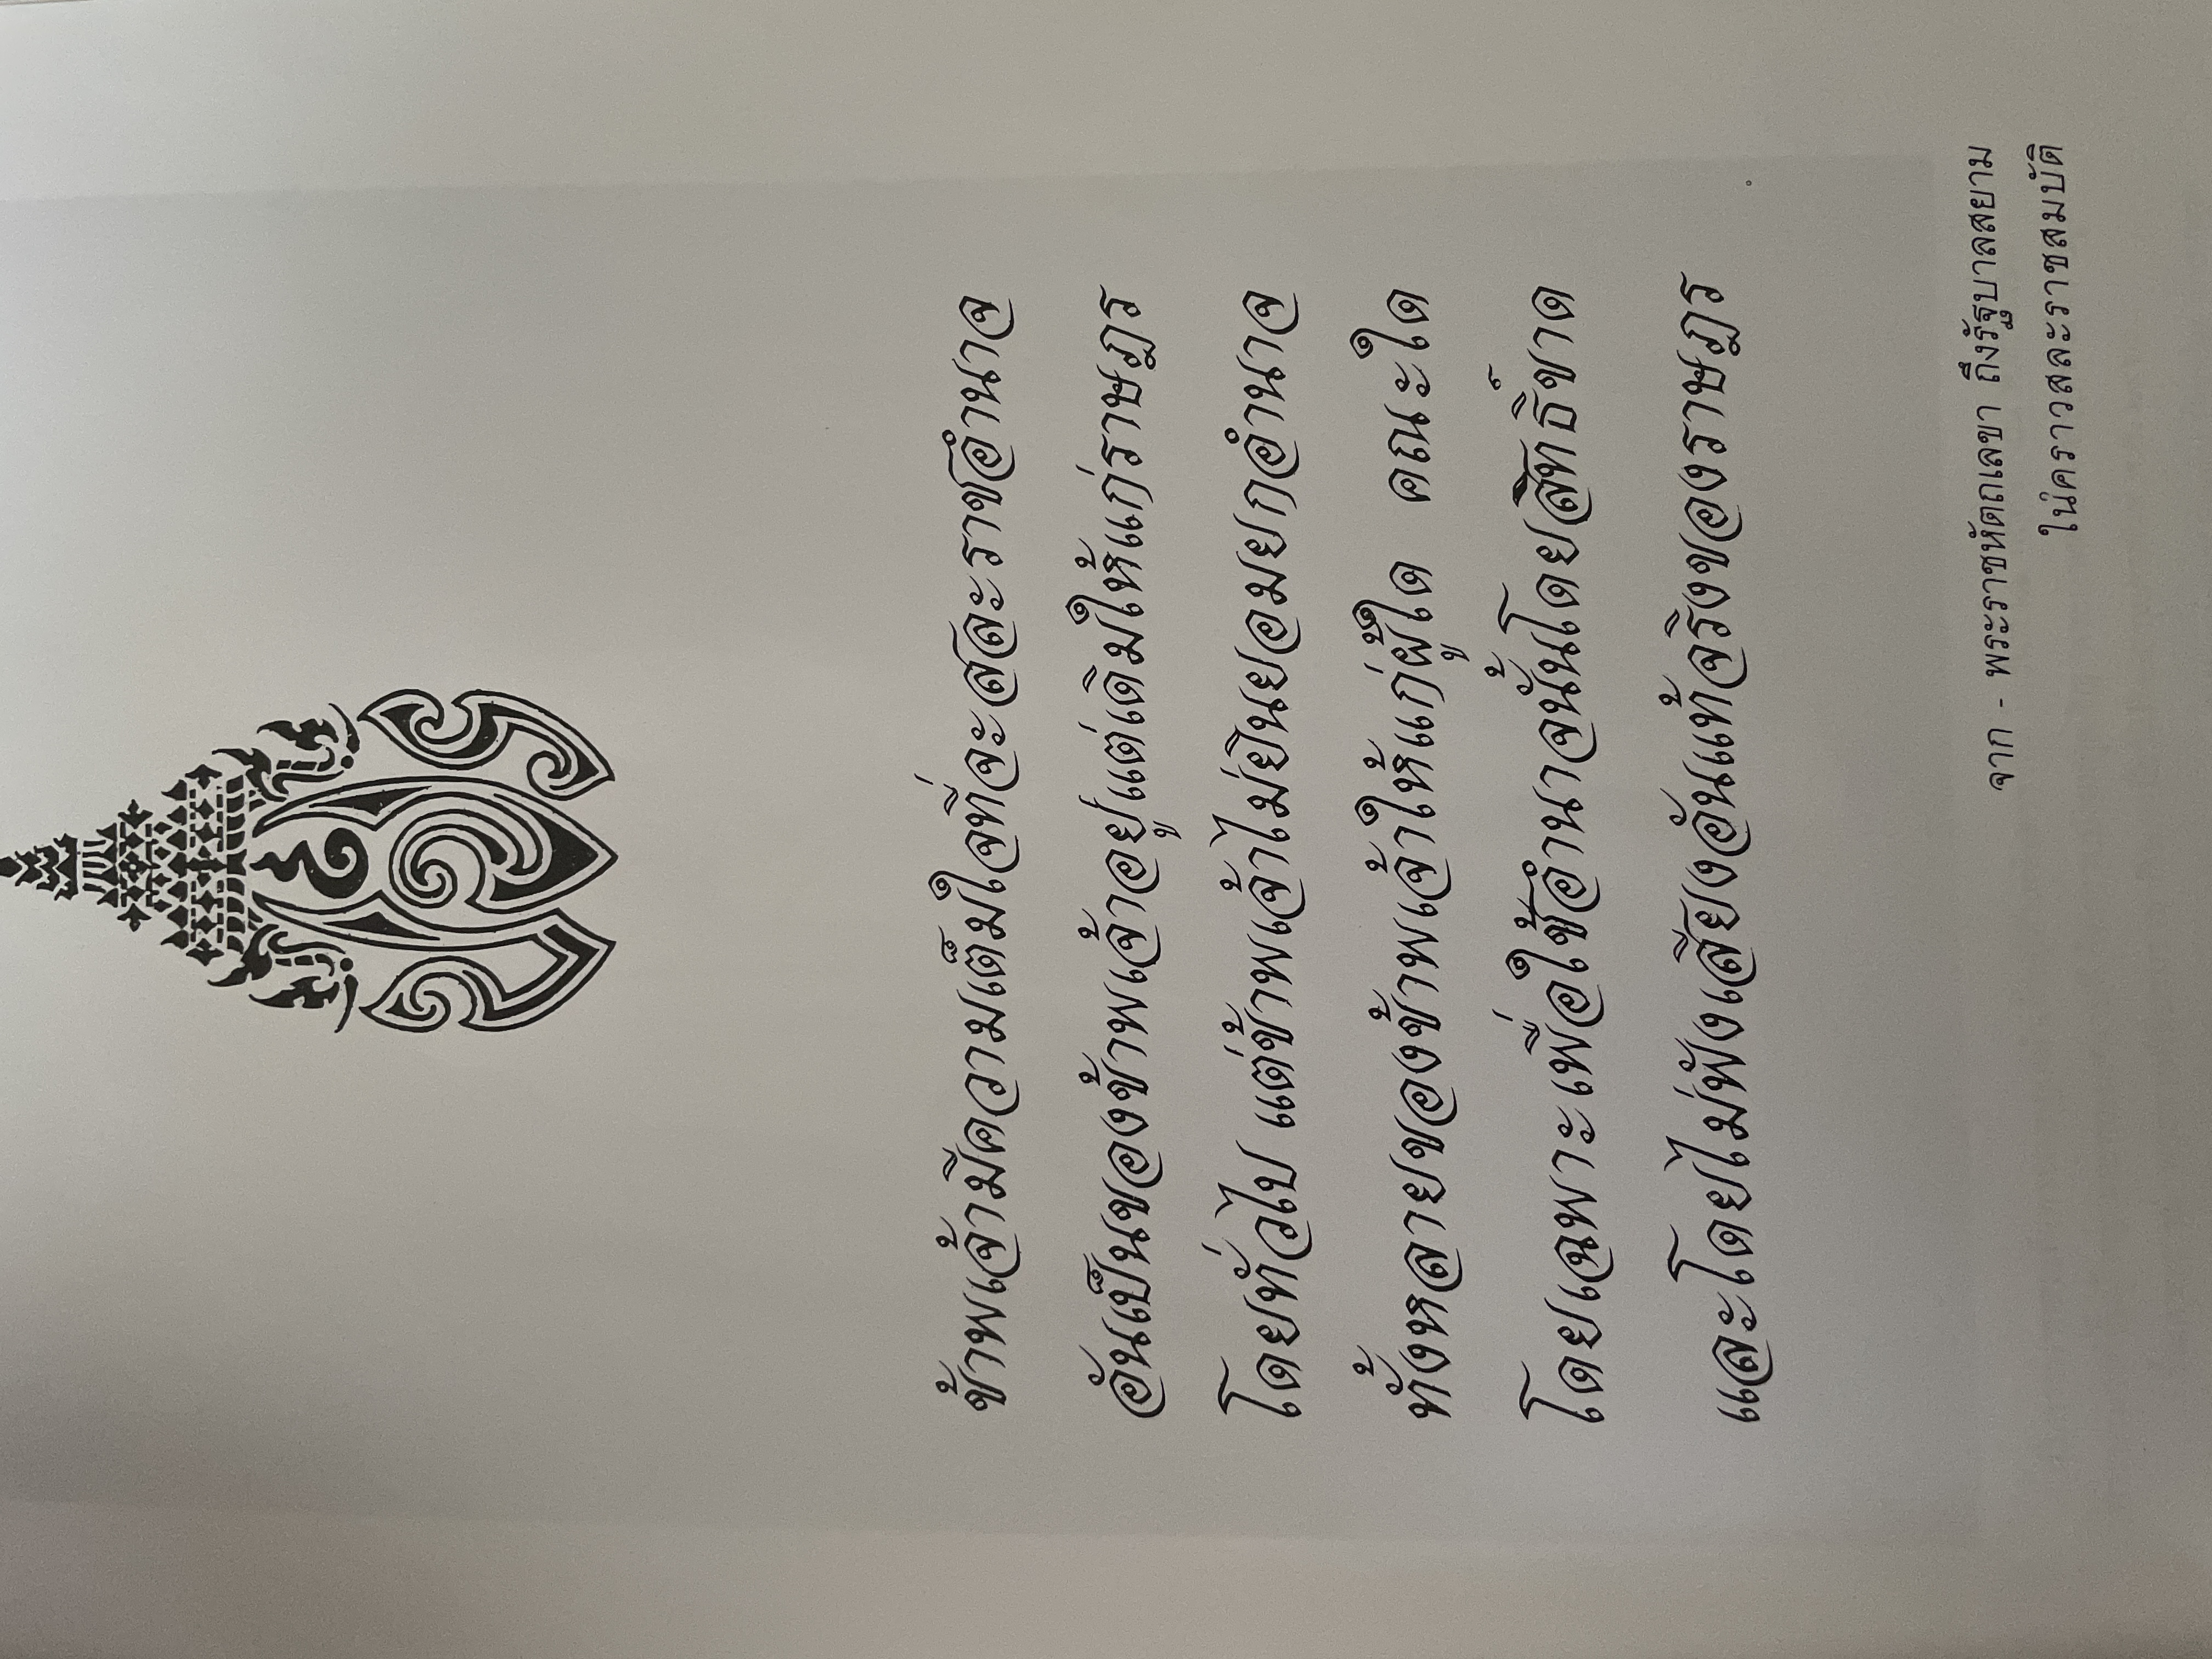 ข้าพเจ้ามีความเต็มใจที่จะสละราชอำนาจ
อันเป็นของข้าพเจ้าอยู่แต่เดิมให้แก่ราษฎร
โดยทั่วไป แต่ข้าพเจ้าไม่ยินยอมยกอำนาจ
ทั้งหลายของข้าพเจ้าให้แก่ผู้ใด คณะใด
โดยเฉพาะเพื่อใช้อำนาจนั้นโดยสิทธิ์ขาด
และโดยไม่ฟังเสียงอันแท้จริงของราษฎร
จาก - พระราชหัตถเลขา ถึงรัฐบาลสยาม
ในคราวสละราชสมบัติ